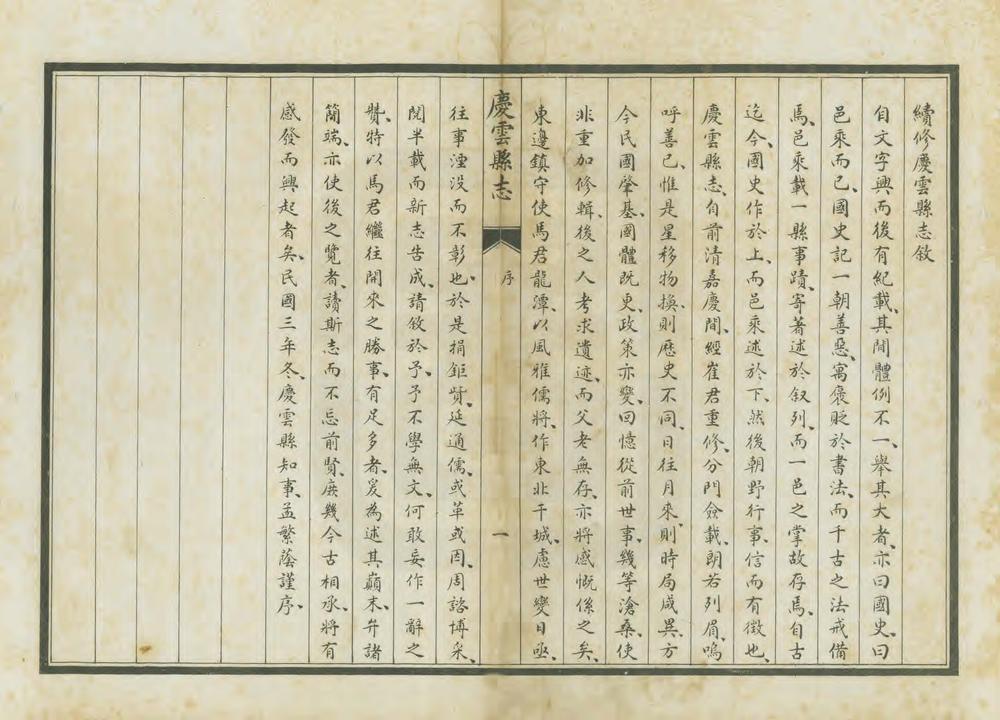 續修慶雲縣志敘
自文字興而後有紀載、其間體例不一、舉其大者、亦曰國史、曰
邑乘而已、國史記一朝善惡、寓褒貶於書法、而千古之法戒備
焉、邑乘載一縣事蹟、寄著述於叙列、而一邑之掌故存焉、自古
迄今、國史作於上、而邑乘述於下、然後朝野行事、信而有徵也、
慶雲縣志、自前清嘉慶間、經崔君重修、分門僉載、朗若列眉、嗚
呼善已、惟是星移物換、則歷史不同、日往月來、則時局咸異、方
今民國肇基、國體既更、政策亦變、回憶從前世事、幾等滄桑、使
非重加修輯、後之人考求遺迹、而父老無存、亦將感慨係之矣、
東邊鎮守使馬君龍潭、以風雅儒將、作東北干城、慮世變日亟、
慶雲縣志
序
一
往事湮没而不彰也、於是捐鉅貲、延通儒、或革或因、周諮博采、
閱半載而新志告成、請敘於予、予不學無文、何敢妄作一辭之
贊、特以馬君繼往開來之勝事、有足多者、爰為述其巔末、弁諸
簡端、亦使後之覽者、讀斯志而不忘前賢、庶幾今古相承、將有
感發而興起者矣、民國三年冬、慶雲縣知事、孟繁蔭謹序、